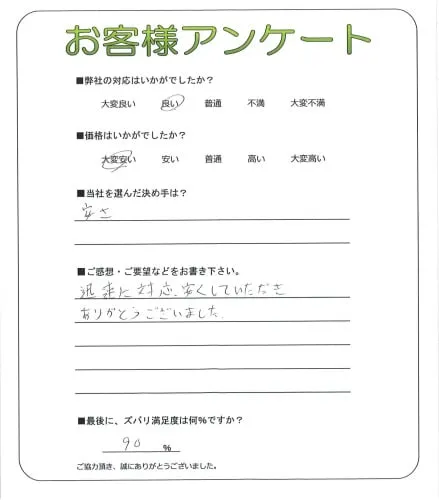 お客様アンケート
■弊社の対応はいかがでしたか？
大変良い 良い 普通 不満 大変不満
■価格はいかがでしたか？
大変安い 安い 普通 高い 大変高い
■当社を選んだ決め手は？
安さ
■ご感想・ご要望などをお書き下さい。
迅速に対応、安くしていただき
ありがとうございました。
■最後に、ズバリ満足度は何％ですか？
90 ％
ご協力頂き、誠にありがとうございました。